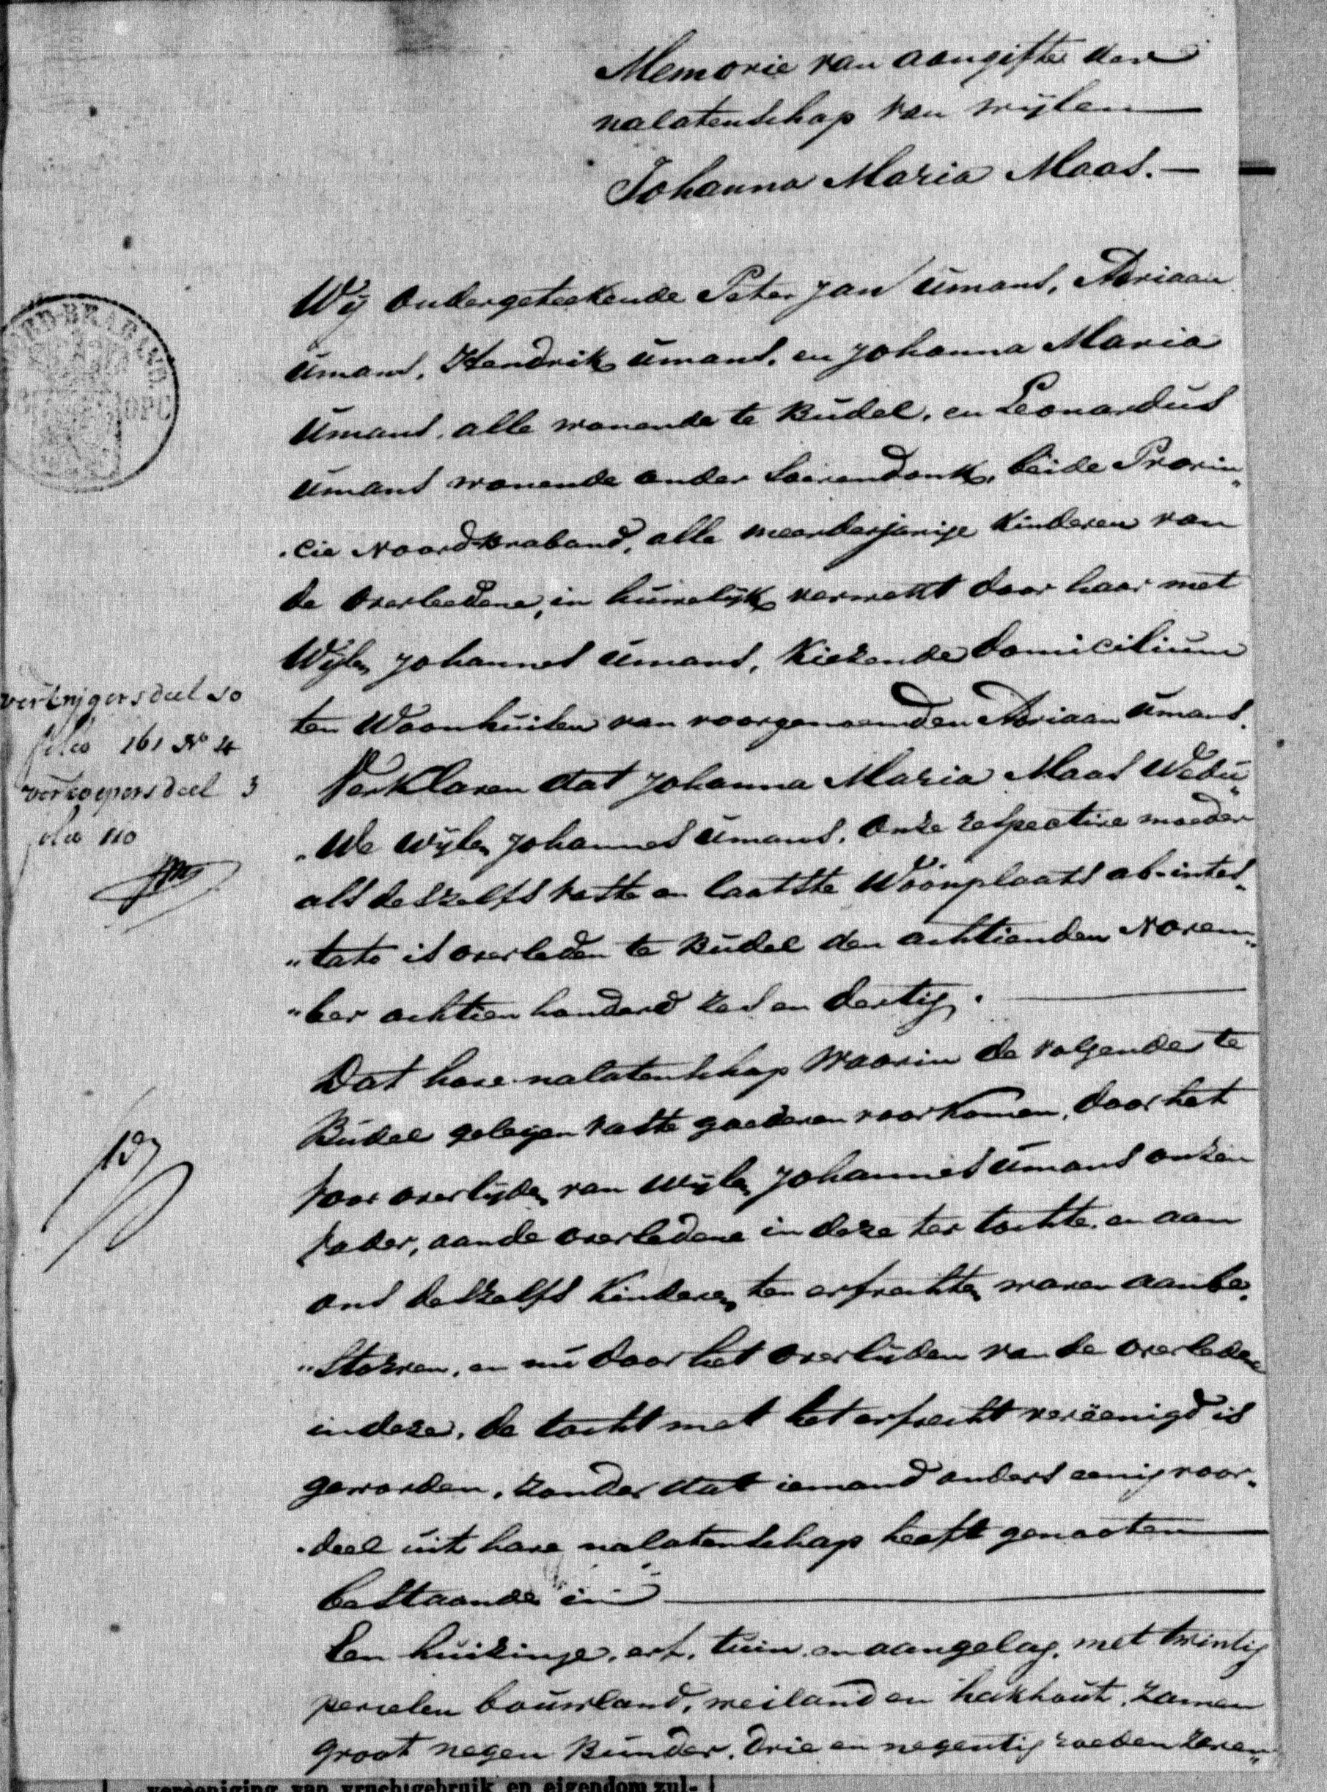 Memorie van aangifte der
nalatenschap van wijlen
Johanna Maria Maas. —
Wij ondergeteekende Peter Jan Umans, Adriaan
Umans, Hendrik Umans, en Johanna Maria
Umans, alle wonende te Budel, en Leonardus
Umans wonende onder Soerendonk, beide Provin„
„cie Noordbraband, alle meerderjarige kinderen van
de overledene, in huwelijk verwekt door haar met
Wijlen Johannes Umans, kiezende domicilium
ten Woonhuise van voorgenoemden Adriaan Umans.
Verklaren dat Johanna Maria Maas Wedu„
„we wijlen Johannes Umans, onze respective moeder
als deszelfs vaste en laatste Woonplaats ab-intes„
„tato is overleden te Budel den achtienden Novem„
„ber achtien honderd zes en dertig. —
Dat hare nalatenschap waarin de volgende te
Budel gelegen vaste goederen voorkomen, door het
voor overlijden van wijlen Johannes Umans onzen
vader, aan de overledene in deze ter tochte en aan
ons deszelfs kinderen ten erfrechten waren aanbe„
„storven, en nu door het overlijden van de overledene
in deze, de tocht met het erfrecht veréenigd is
geworden, zonder dat iemand anders eenig voor„
„deel uit hare nalatenschap heeft genooten —
bestaande in —
Een huizinge, erf, tuin en aangelag, met twintig
percelen bouwland, weiland en hakhout, zamen
groot negen Bunder, drie en negentig roeden zeven„
verkrijgers deel 10
folio 161 No 4
verkoopers deel 3
folio 110
vereeniging van vruchtgebruik en eigendom zul-